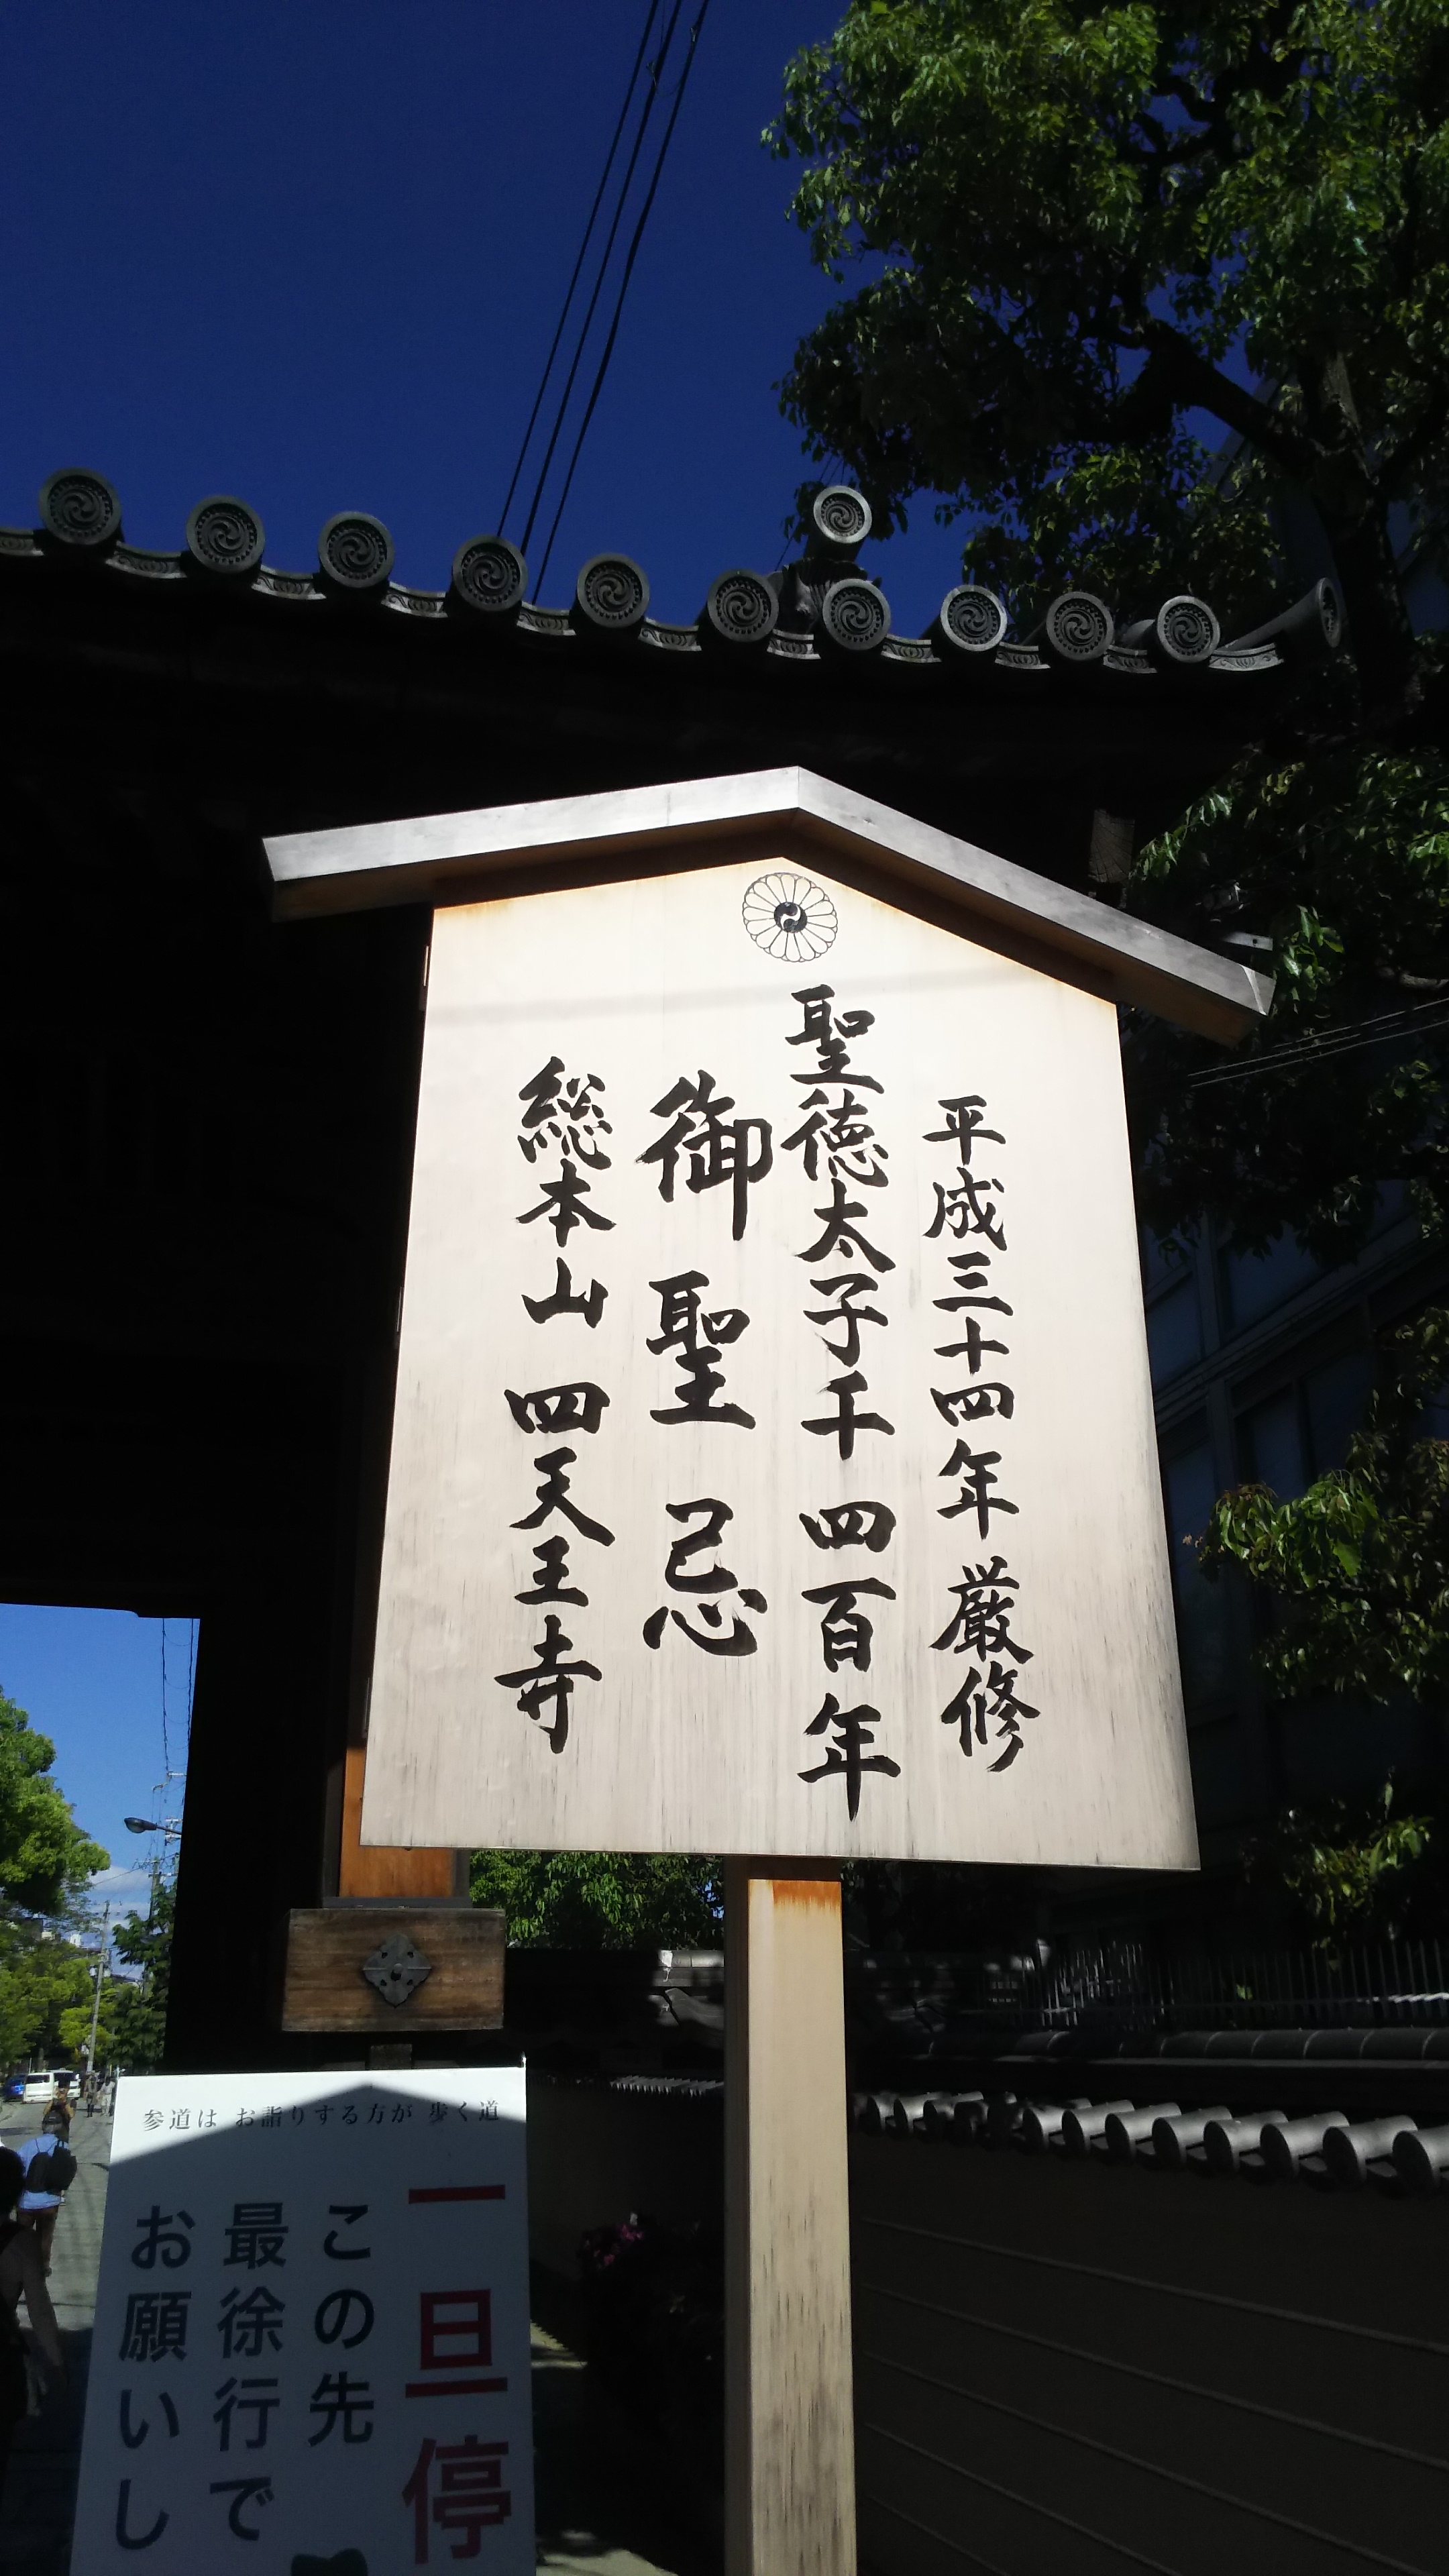 平成三十四年 厳修
聖徳太子千四百年
御聖忌
総本山 四天王寺
参道は お詣りする方が 歩く道
一旦停
この先
最徐行で
お願いし